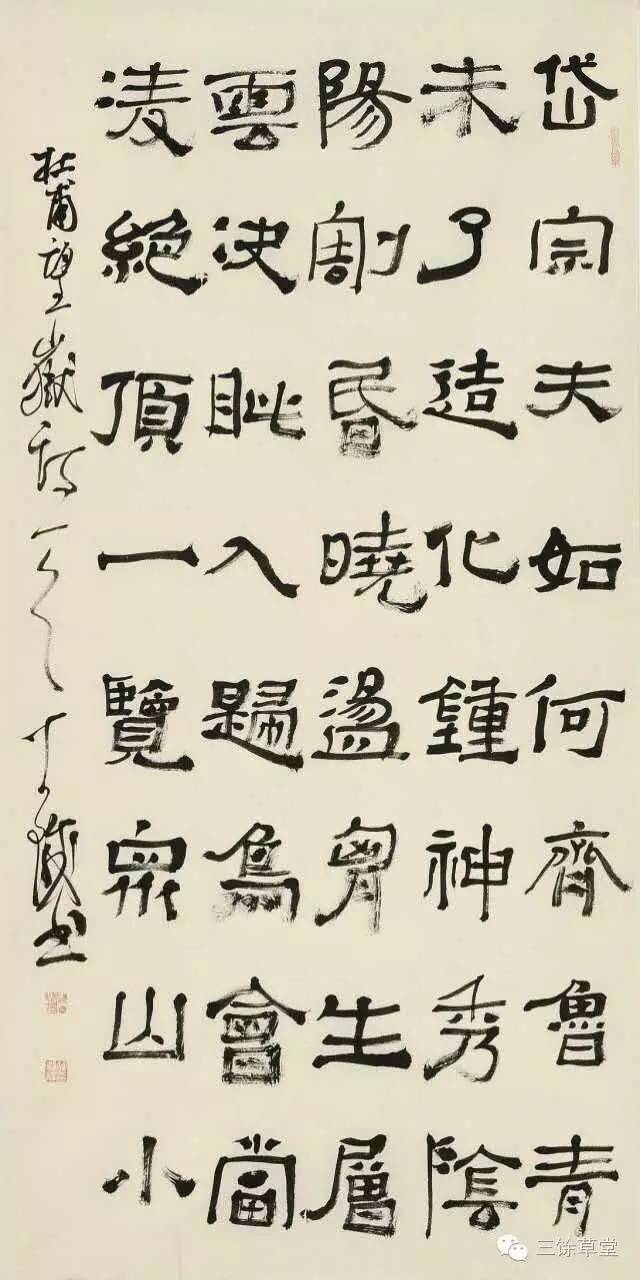 岱宗夫如何齊魯青
未了造化鍾神秀陰
陽割昏曉盪胷生層
雲决眥入歸鳥會當
淩絕頂一覽衆山小
杜甫望嶽詩一
書
三馀草堂